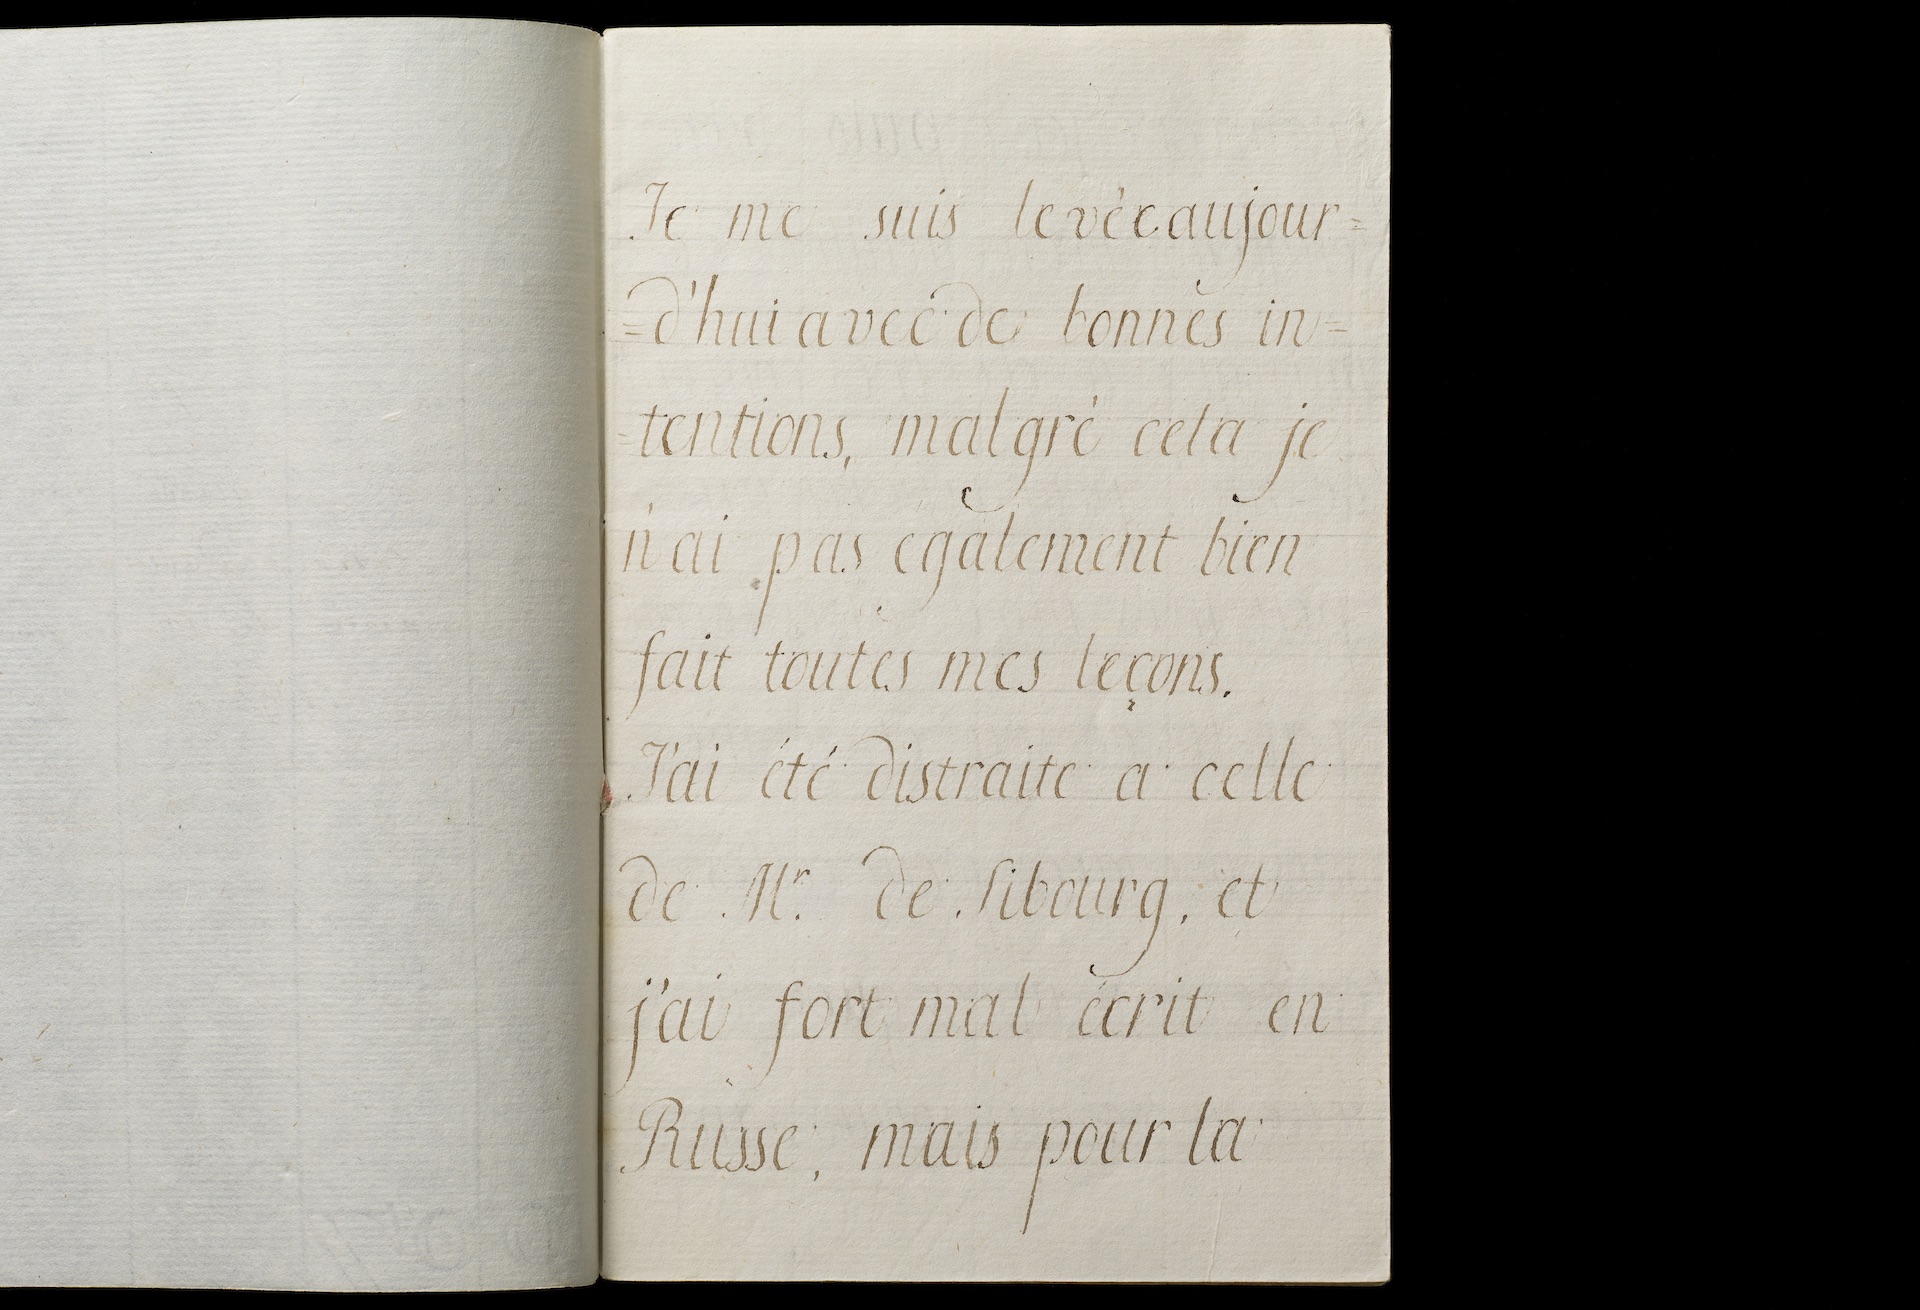 Je me suis levée aujour=
=d'hui avec de bonnes in=
=tentions, malgré cela je
n'ai pas egalement bien
fait toutes mes leçons.
J'ai été distraite a celle
de Mr. de Sibourg, et
j'ai fort mal écrit en
Russe, mais pour la